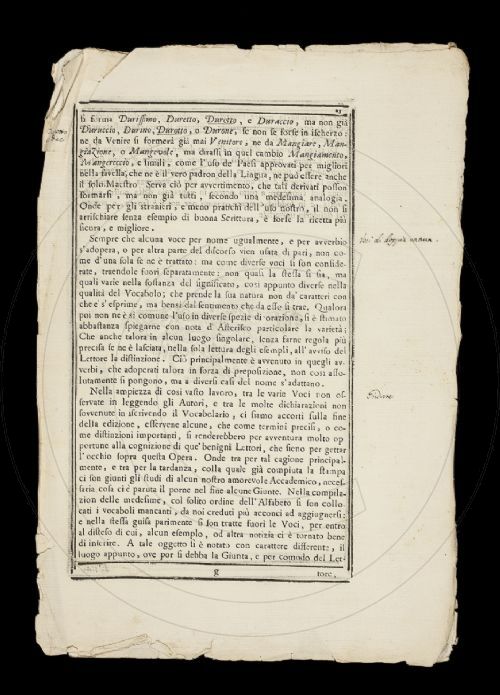 si forma Durissimo, Duretto, Durotto, e Duraccio, ma non già
Duruccio, Durino, Durotto, o Durone, se non se forse in ischerzo:
ne da Venire si formerà già mai Venitore, ne da Mangiare, Man-
giazione, o Mangevole, ma dirassi in quel cambio Mangiamento,
Mangereccio, e simili, come l'uso de' Paesi approvati per migliori
nella favella, che ne è il vero padron della Lingua, ne può essere anche
il solo Maestro. Serva ciò per avvertimento, che tali derivati posson
formarsi, ma non già tutti, secondo una medesima analogìa.
Onde per gli stranieri, e meno pratichi dell'uso nostro, il non si
arrischiare senza esempio di buona Scrittura, è forse la ricetta più
sicura, e migliore.
Sempre che alcuna voce per nome ugualmente, e per avverbio
s'adopera, o per altra parte del discorso vien usata di pari, non co-
me d'una sola se ne è trattato: ma come diverse voci si son conside-
rate, traendole fuori separatamente: non quasi la stessa si sia, ma
quali varie nella sostanza del significato, così appunto diverse nella
qualità del Vocabolo; che prende la sua natura non da' caratteri con
che e' s'esprime, ma bensì dal sentimento che da esse si trae. Qualora
poi non ne è sì comune l'uso in diverse spezie di orazione, si è stimato
abbastanza spiegarne con nota d'Asterisco particolare la varietà;
Che anche talora in alcun luogo singolare, senza farne regola più
precisa se ne è lasciata, nella sola lettura degli esempli, all'avviso del
Lettore la distinzione. Ciò principalmente è avvenuto in quegli av-
verbi, che adoperati talora in forza di preposizione, non così asso-
lutamente si pongono, ma a diversi casi del nome s'adattano.
Nella ampiezza di così vasto lavoro, tra le varie Voci non os-
servate in leggendo gli Autori, e tra le molte dichiarazioni non
sovvenute in iscrivendo il Vocabolario, ci siamo accorti sulla fine
della edizione, esservene alcune, che come termini precisi, o co-
me distinzioni importanti, si renderebbero per avventura molto op-
portune alla cognizione di que' benigni Lettori, che sieno per gettar
l'occhio sopra questa Opera. Onde tra per tal cagione principal-
mente, e tra per la tardanza, colla quale già compiuta la stampa
ci son giunti gli studi di alcun nostro amorevole Accademico, neces-
seria cosa ci è paruta il porne nel fine alcune Giunte. Nella compila-
zion delle medesime, col solito ordine dell'Alfabeto si son collocati
i vocaboli mancanti, da noi creduti più acconci ad aggiugnersi:
e nella stessa guisa parimente si son tratte fuori le Voci, per entro
al disteso di cui, alcun esempio, od altra notizia ci è tornato bene
di inserire. A tale oggetto si è notato con carattere differente, il
luogo appunto, ove por si debba la Giunta, e per comodo del Let-
g
tore,